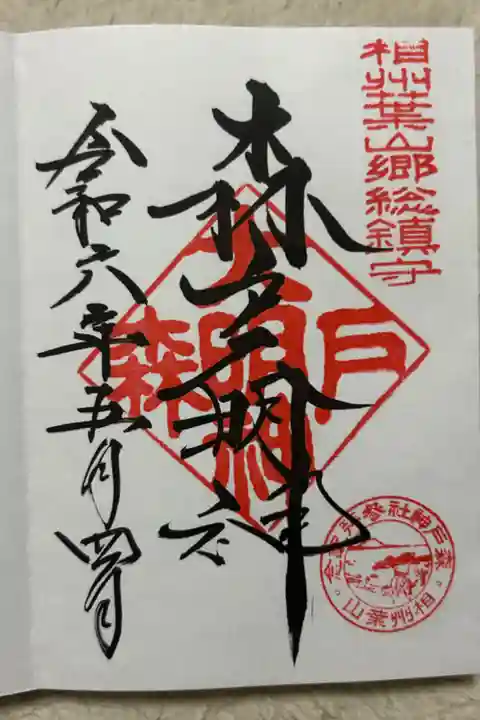 相州葉山郷総鎮守
森戸大明神
令和六年五月四日
森戸大明神
森戸神社参拝記念。相州葉山。